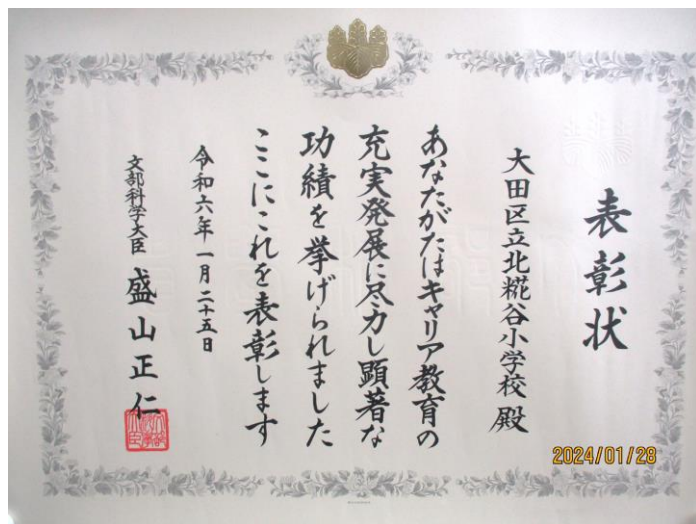 表彰状
大田区立北糀谷小学校 殿
あなたがたはキャリア教育の
充実発展に尽力し顕著な
功績を挙げられました
ここにこれを表彰します
令和六年一月二十五日
文部科学大臣 盛山正仁
2024/01/28